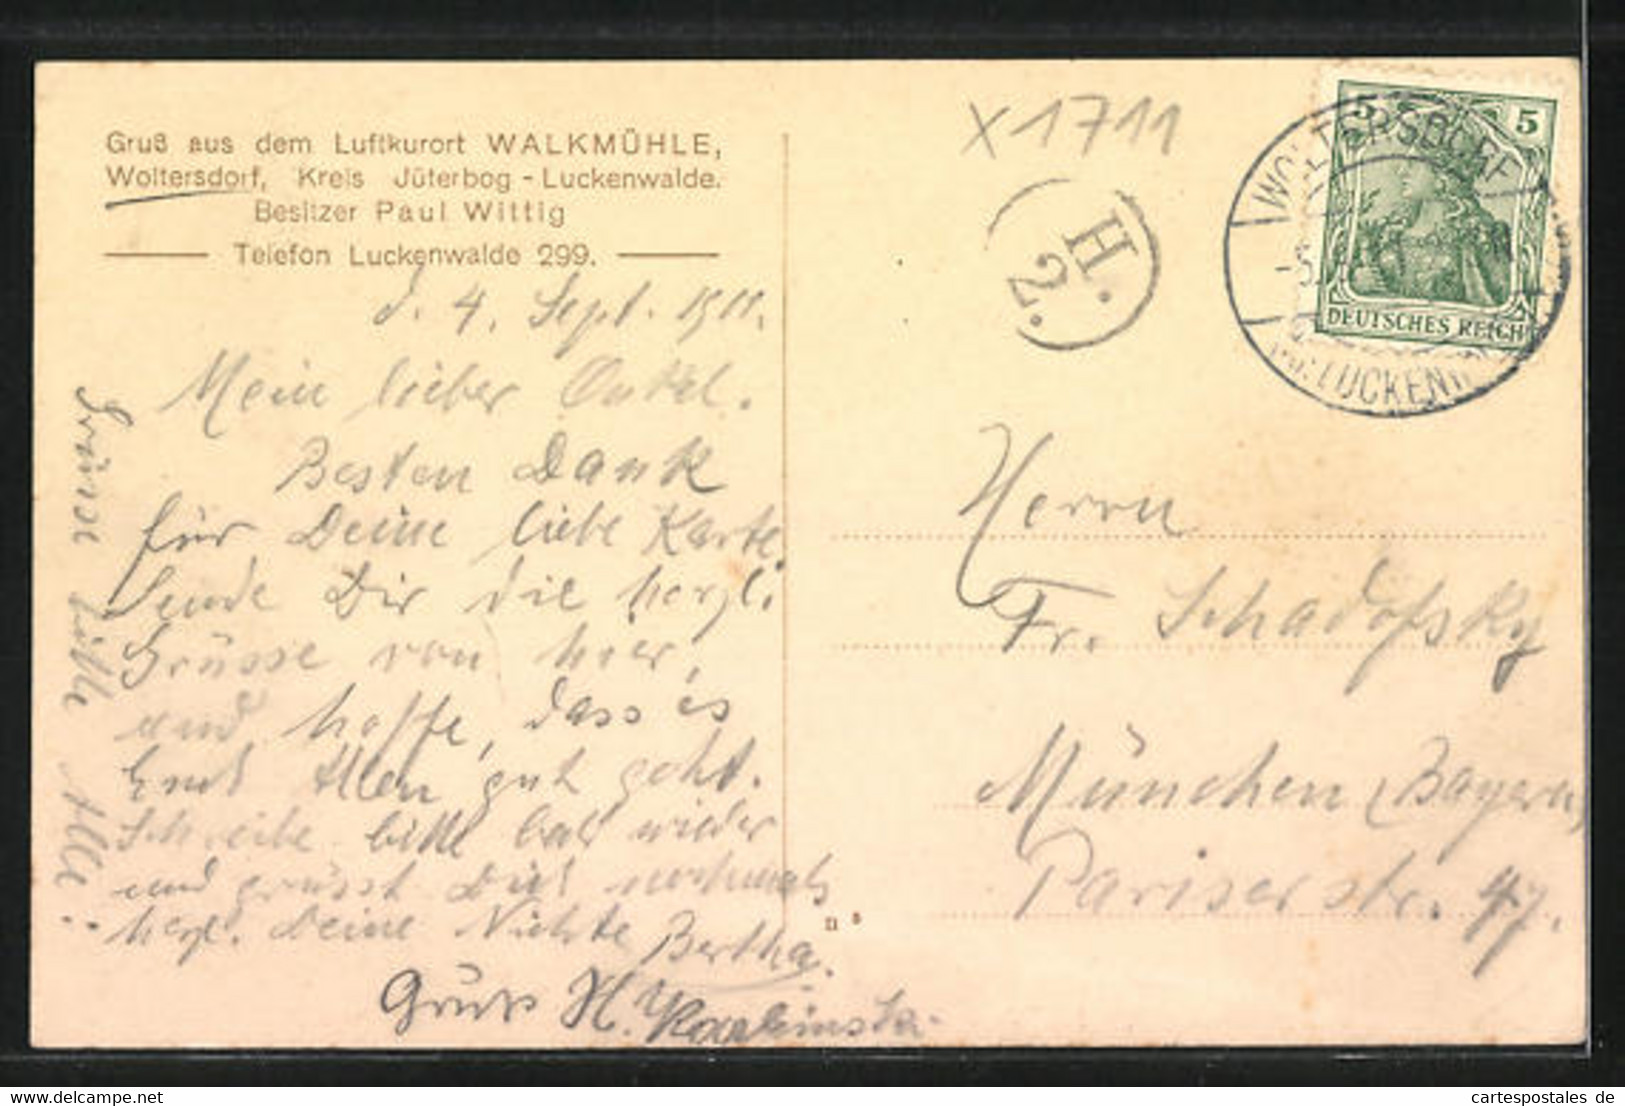 Gruß aus dem Luftkurort WALKMÜHLE,
Woltersdorf, Kreis Jüterbog - Luckenwalde.
Besitzer Paul Wittig
Telefon Luckenwalde 299.
d. 4. Sept. 1911.
Mein lieber Onkel.
Besten Dank
für Deine liebe Karte.
Sende Dir die herzl.
Grüsse von hier,
und hoffe, dass es
Euch Allen gut geht.
Schreibe bitte bald wieder
und grüsst Dich nochmals
herzl. Deine Nichte Bertha.
Gruss H.
Grüsse bitte Alle.
X 1711
H.
2.
5 5
DEUTSCHES REICH
WOLTERSDORF
LUCKENW
Herrn
Fr. Schadofsky
München (Bayern)
Pariserstr. 47.
cartespostales de